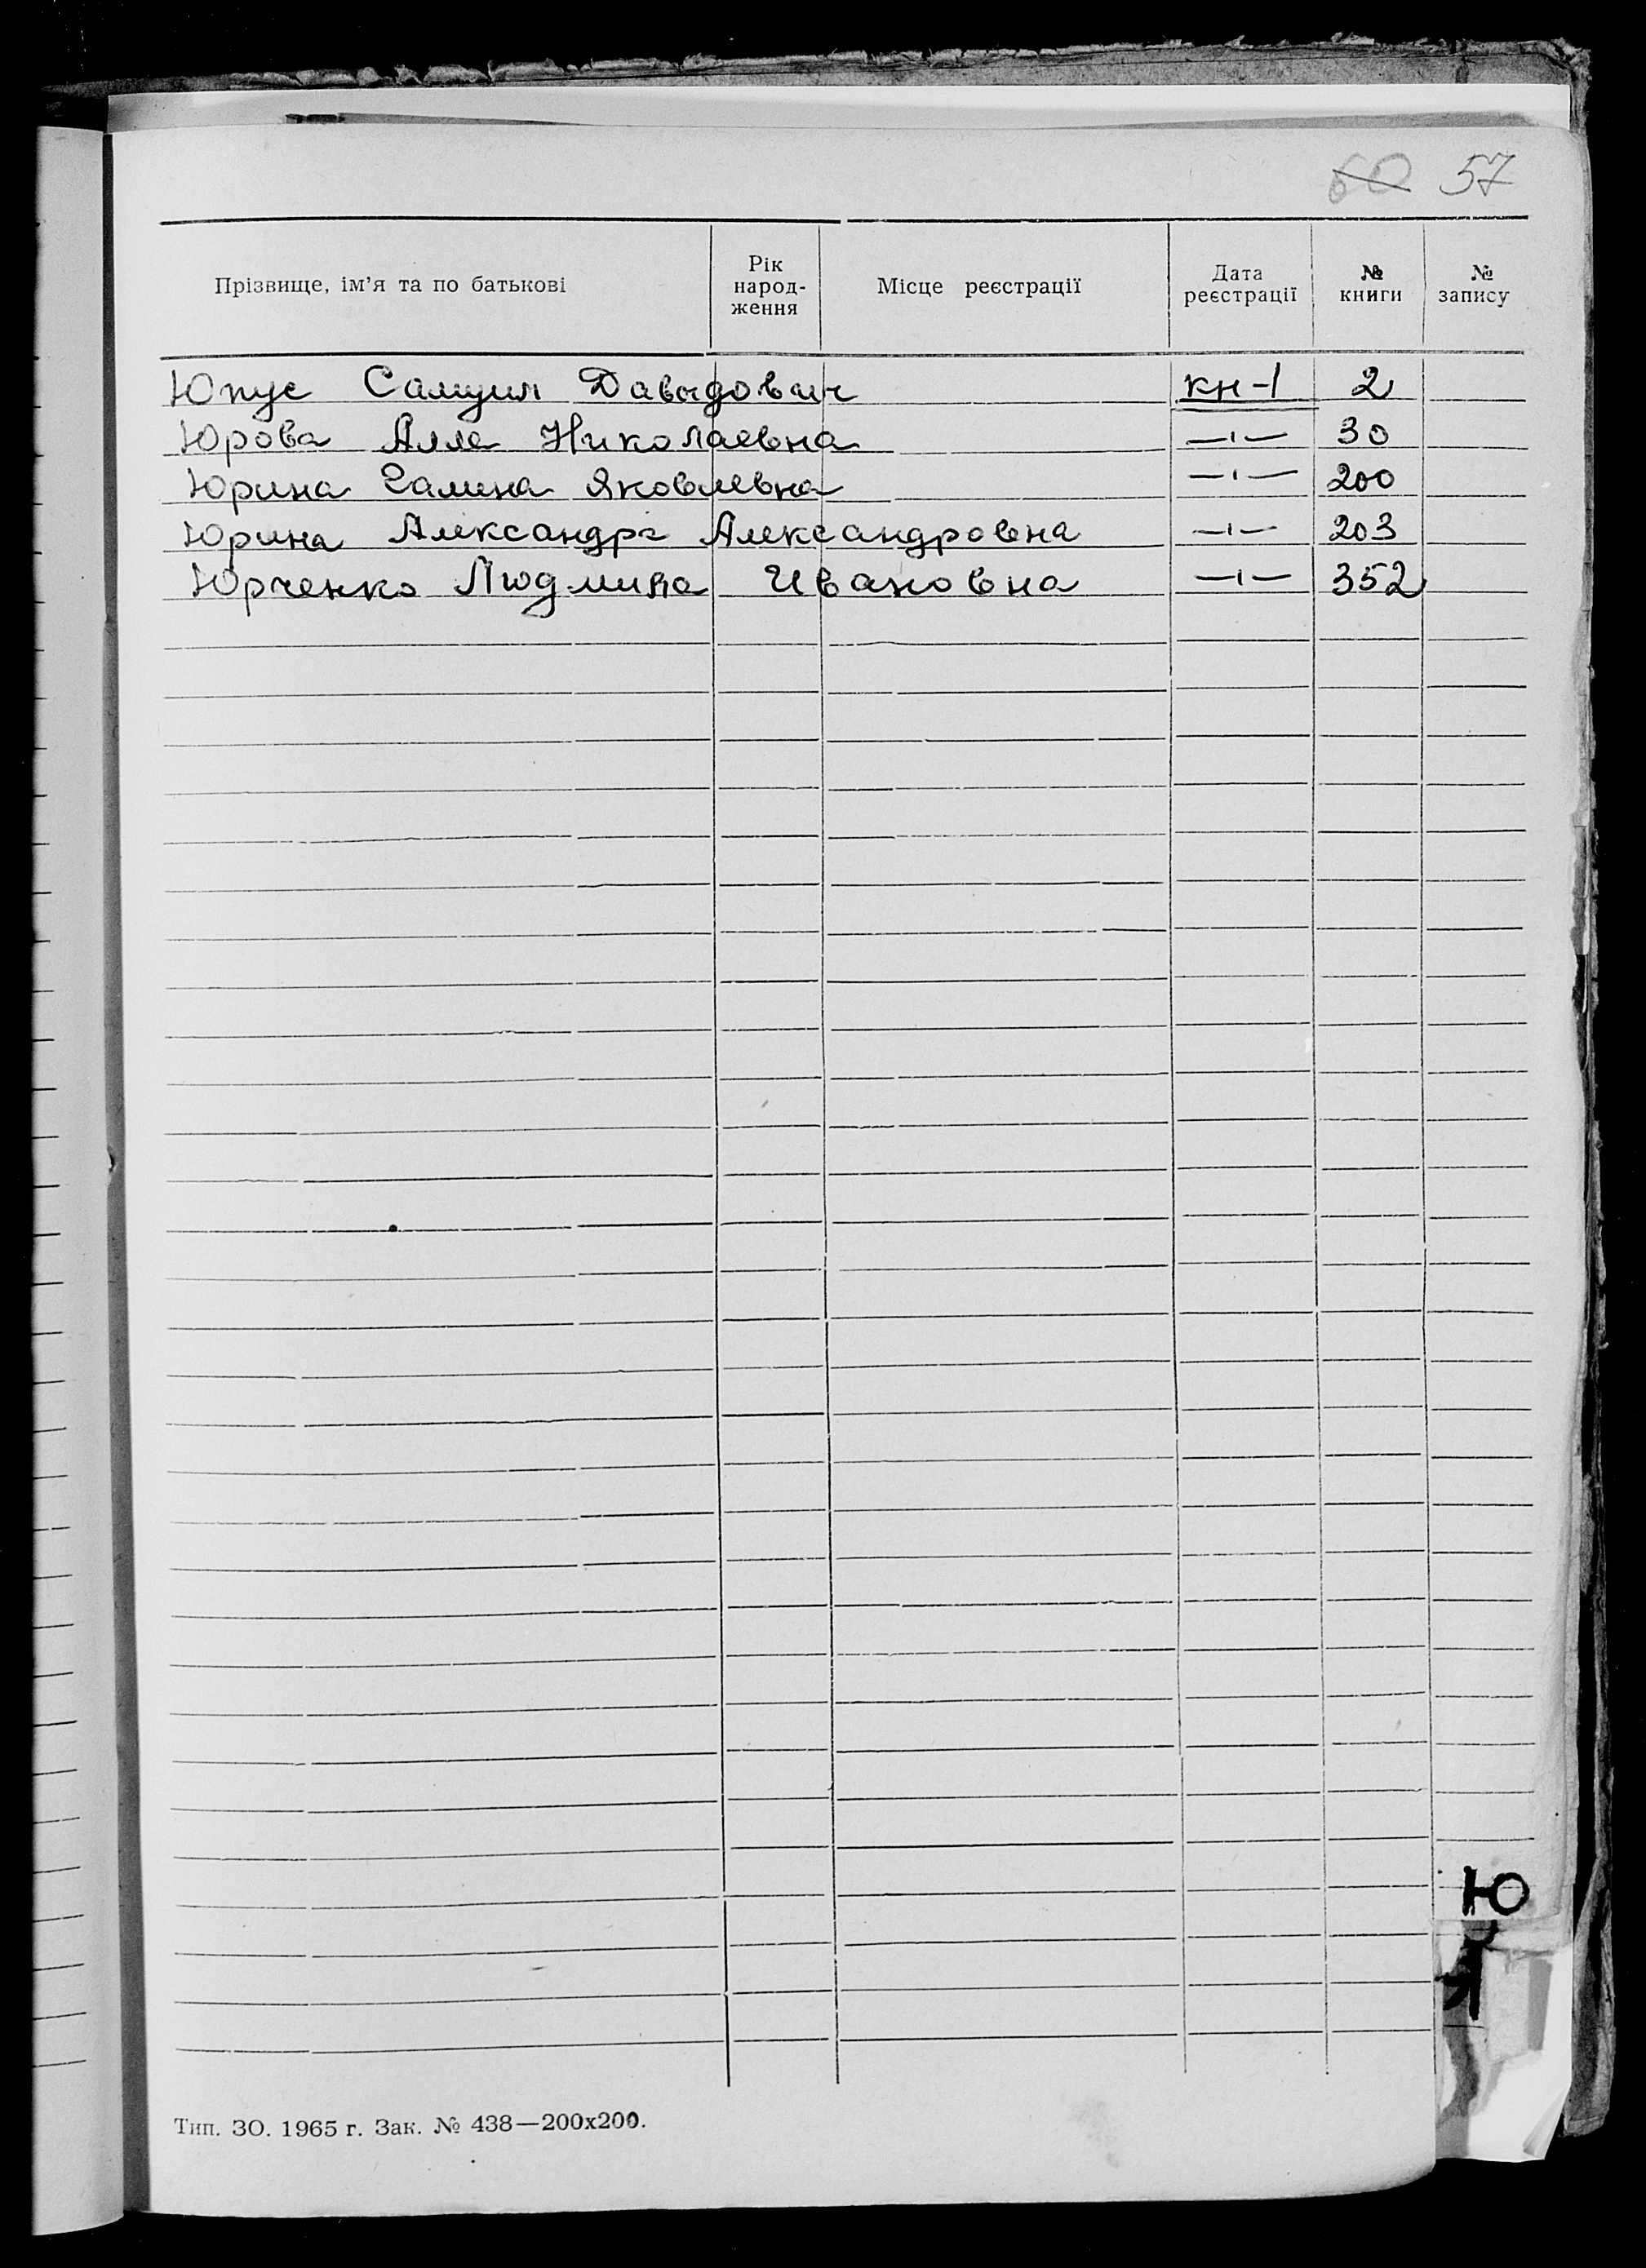 60 57
Прізвище, ім'я та по батькові Рік народ-ження Місце реєстрації Дата реєстрації № книги № запису
Юпус Самуил Давыдович кн-1 2
Юрова Алла Николаевна —ı— 30
Юрина Галина Яковлевна —ı— 200
Юрина Александра Александровна —ı— 203
Юрченко Людмила Ивановна —ı— 352
Ю
Я
Тип. ЗО. 1965 г. Зак. № 438—200х200.